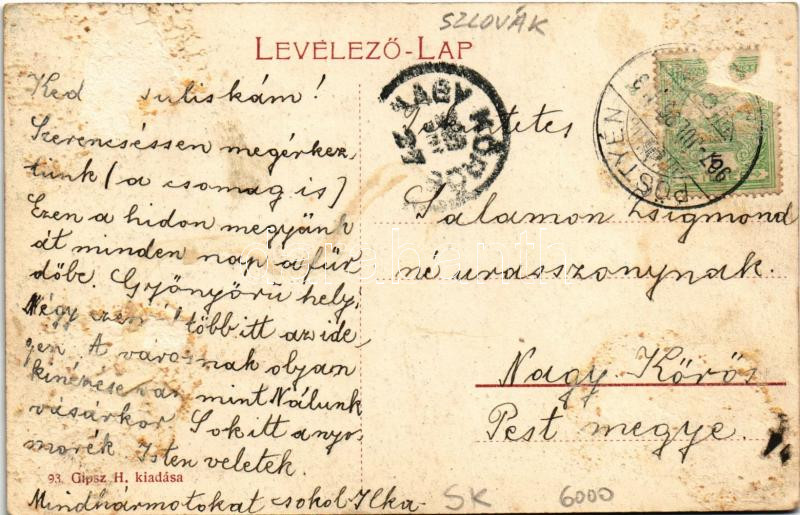 SZLOVÁK
LEVELEZŐ-LAP
Ked Juliskám!
Szerencséssen megérkez-
tünk (a csomag is)
Ezen a hidon megyünk
át minden nap a für
dőbe. Gyönyörű hely,
Négy ezer több itt az ide
gen. A városnak olyam
kinézése van mint Nálunk
vásárkor Sok itt a nyo-
morék. Isten veletek.
Mindhármotokat csokol Ilka
93. Gipsz H. kiadása
NAGY KŐRÖS
PÖSTYÉN
Tekintetes
Salamon Zsigmond
né urasszonynak.
Nagy Kőrös
Pest megye
SK 6000